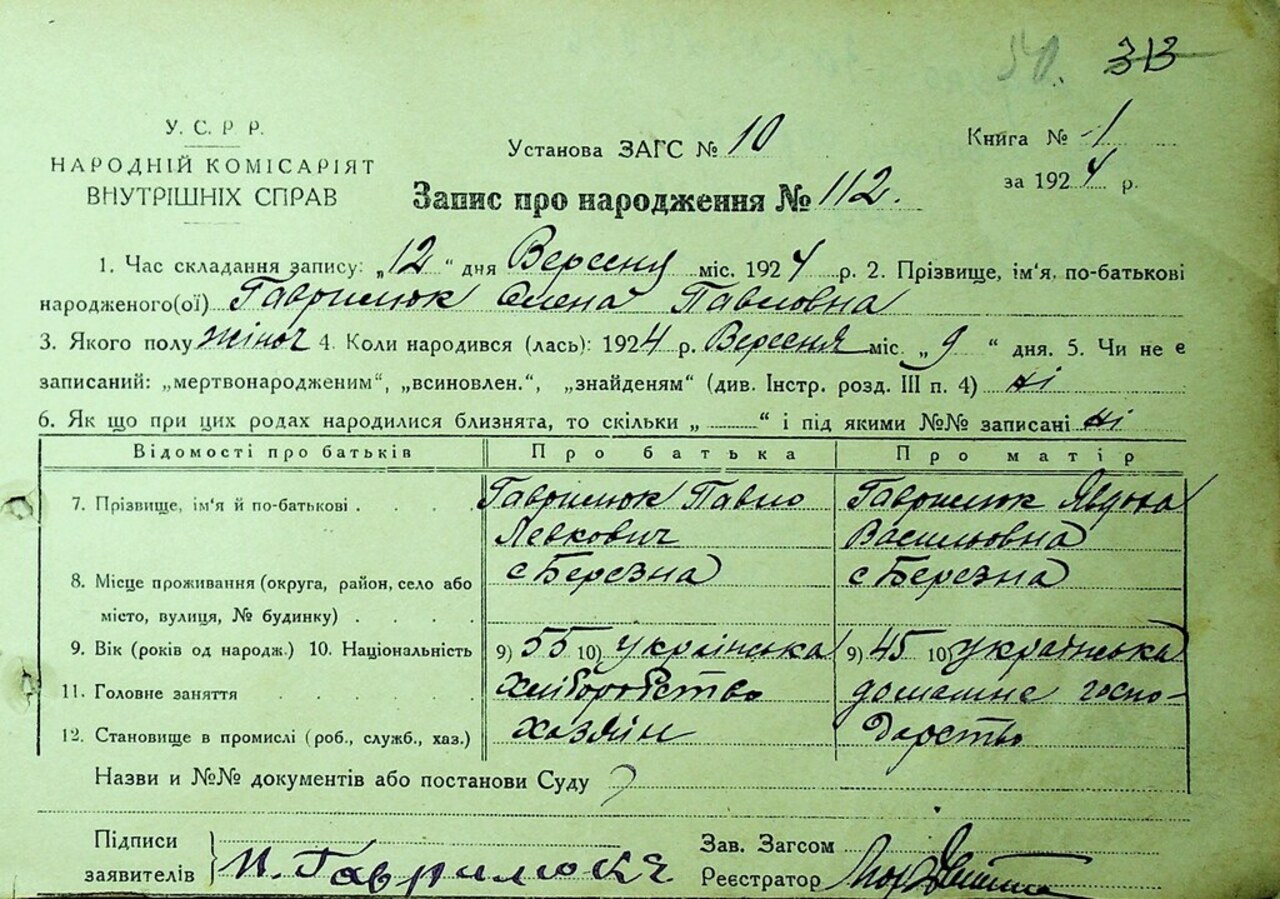 50. 33
У. С. Р Р.
НАРОДНІЙ КОМІСАРІЯТ
ВНУТРІШНІХ СПРАВ
Установа ЗАГС № 10
Книга № 1
за 1924 р.
Запис про народження № 112.
1. Час складання запису: „12“ дня Вересня міс. 1924 р. 2. Прізвище, ім'я, по-батькові
народженого(ої) Гаврилюк Олена Павловна
3. Якого полу жіноч 4. Коли народився (лась): 1924 р. Вересня міс. „9“ дня. 5. Чи не є
записаний: „мертвонародженим“, „всиновлен.“, „знайденям“ (див. Інстр. розд. III п. 4) ні
6. Як що при цих родах народилися близнята, то скільки „ “ і під якими №№ записані ні
Відомості про батьків Про батька Про матір
7. Прізвище, ім'я й по-батькові . . . . Гаврилюк Павло Гаврилюк Явдоха
Левкович Васильовна
8. Місце проживання (округа, район, село або с Березна с Березна
місто, вулиця, № будинку) . . . .
9. Вік (років од народж.) 10. Національність 9) 55 10) українська 9) 45 10) українська
11. Головне заняття . . . . хліборобство домашне госпо-
12. Становище в промислі (роб., служб., хаз.) хозяін дарство
Назви и №№ документів або постанови Суду
Підписи
заявителів П. Гаврилюк
Зав. Загсом
Реєстратор